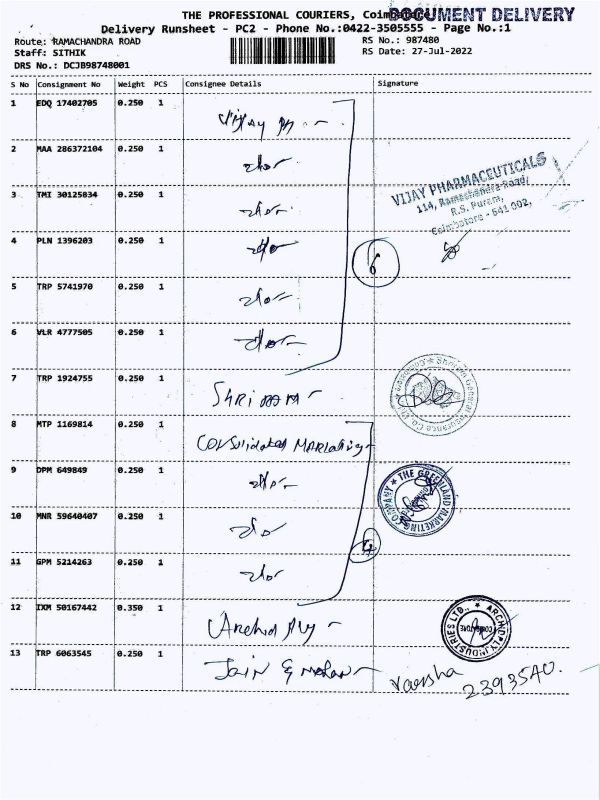 THE PROFESSIONAL COURIERS, Coimbatore
DOCUMENT DELIVERY
Delivery Runsheet - PC2 - Phone No.:0422-3505555 - Page No.:1
Route: RAMACHANDRA ROAD
RS No.: 987480
Staff: SITHIK
RS Date: 27-Jul-2022
DRS No.: DCJB98748001
S No Consignment No Weight PCS Consignee Details Signature
1 EDQ 17402705 0.250 1 Vijay
2 MAA 286372104 0.250 1
3 TMI 30125834 0.250 1
VIJAY PHARMACEUTICALS
114, Ramachandra Road,
R.S. Puram,
Coimbatore - 641 002.
4 PLN 1396203 0.250 1
6
5 TRP 5741970 0.250 1
6 VLR 4777505 0.250 1
7 TRP 1924755 0.250 1 SHRIRAM
Shriram General Insurance Co.
8 MTP 1169814 0.250 1 Consolidated Marketing
9 DPM 649849 0.250 1
THE GREENLAND MARKETING COMPANY
10 MNR 59640407 0.250 1
4
11 GPM 5214263 0.250 1
12 IXM 50167442 0.350 1 Archid Ply
ARCHID PLY INDUSTRIES LTD.,
COIMBATORE
13 TRP 6063545 0.250 1 Jain & Mohan
Varsha
2393540.